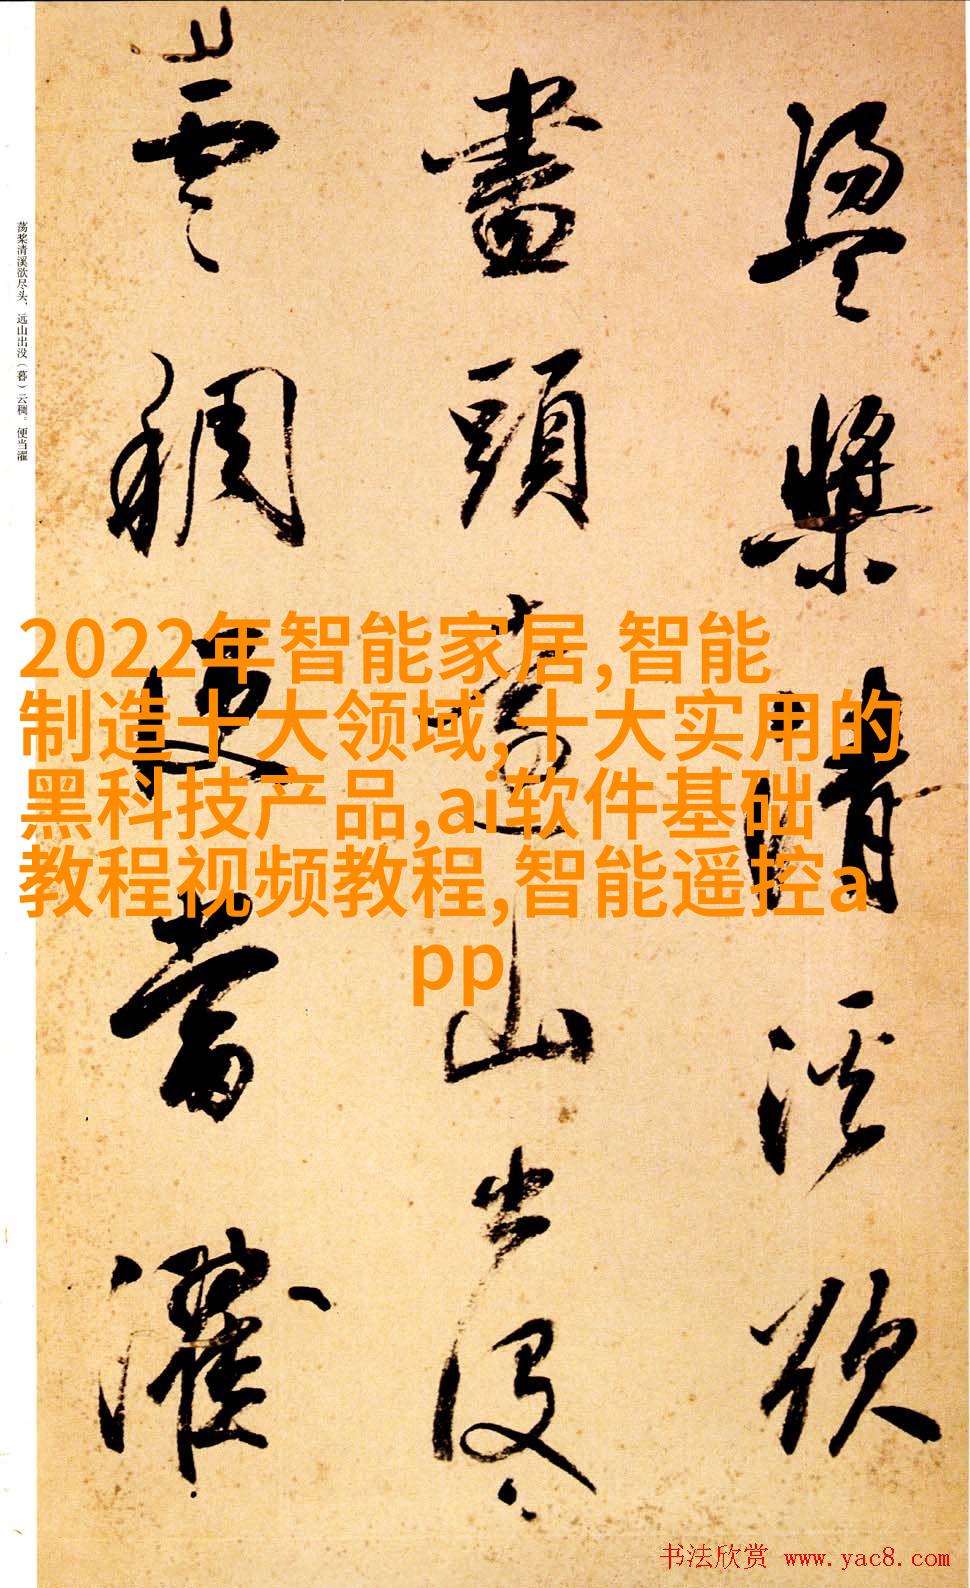 盪槳清溪欲
盡頭遠山出没
雲稠便當濯
荡桨清溪欲尽头，远山出没（暮）云稠。便当濯
2022年智能家居,智能
制造十大领域,十大实用的
黑科技产品,ai软件基础
教程视频教程,智能遥控a
pp
书法欣赏 www.yac8.com